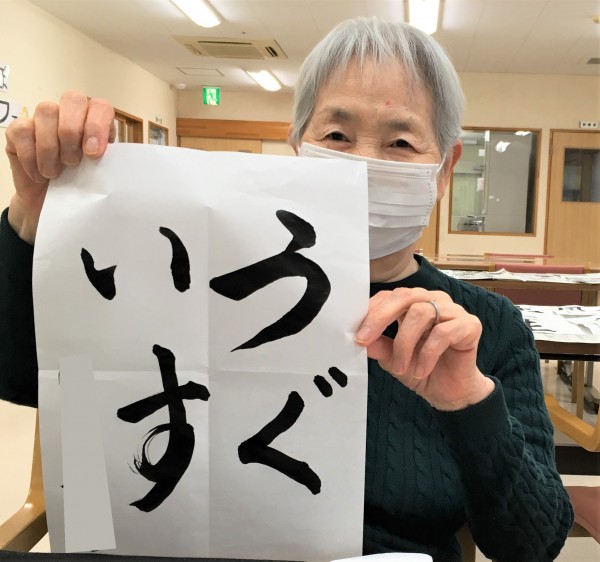 うぐ
いす